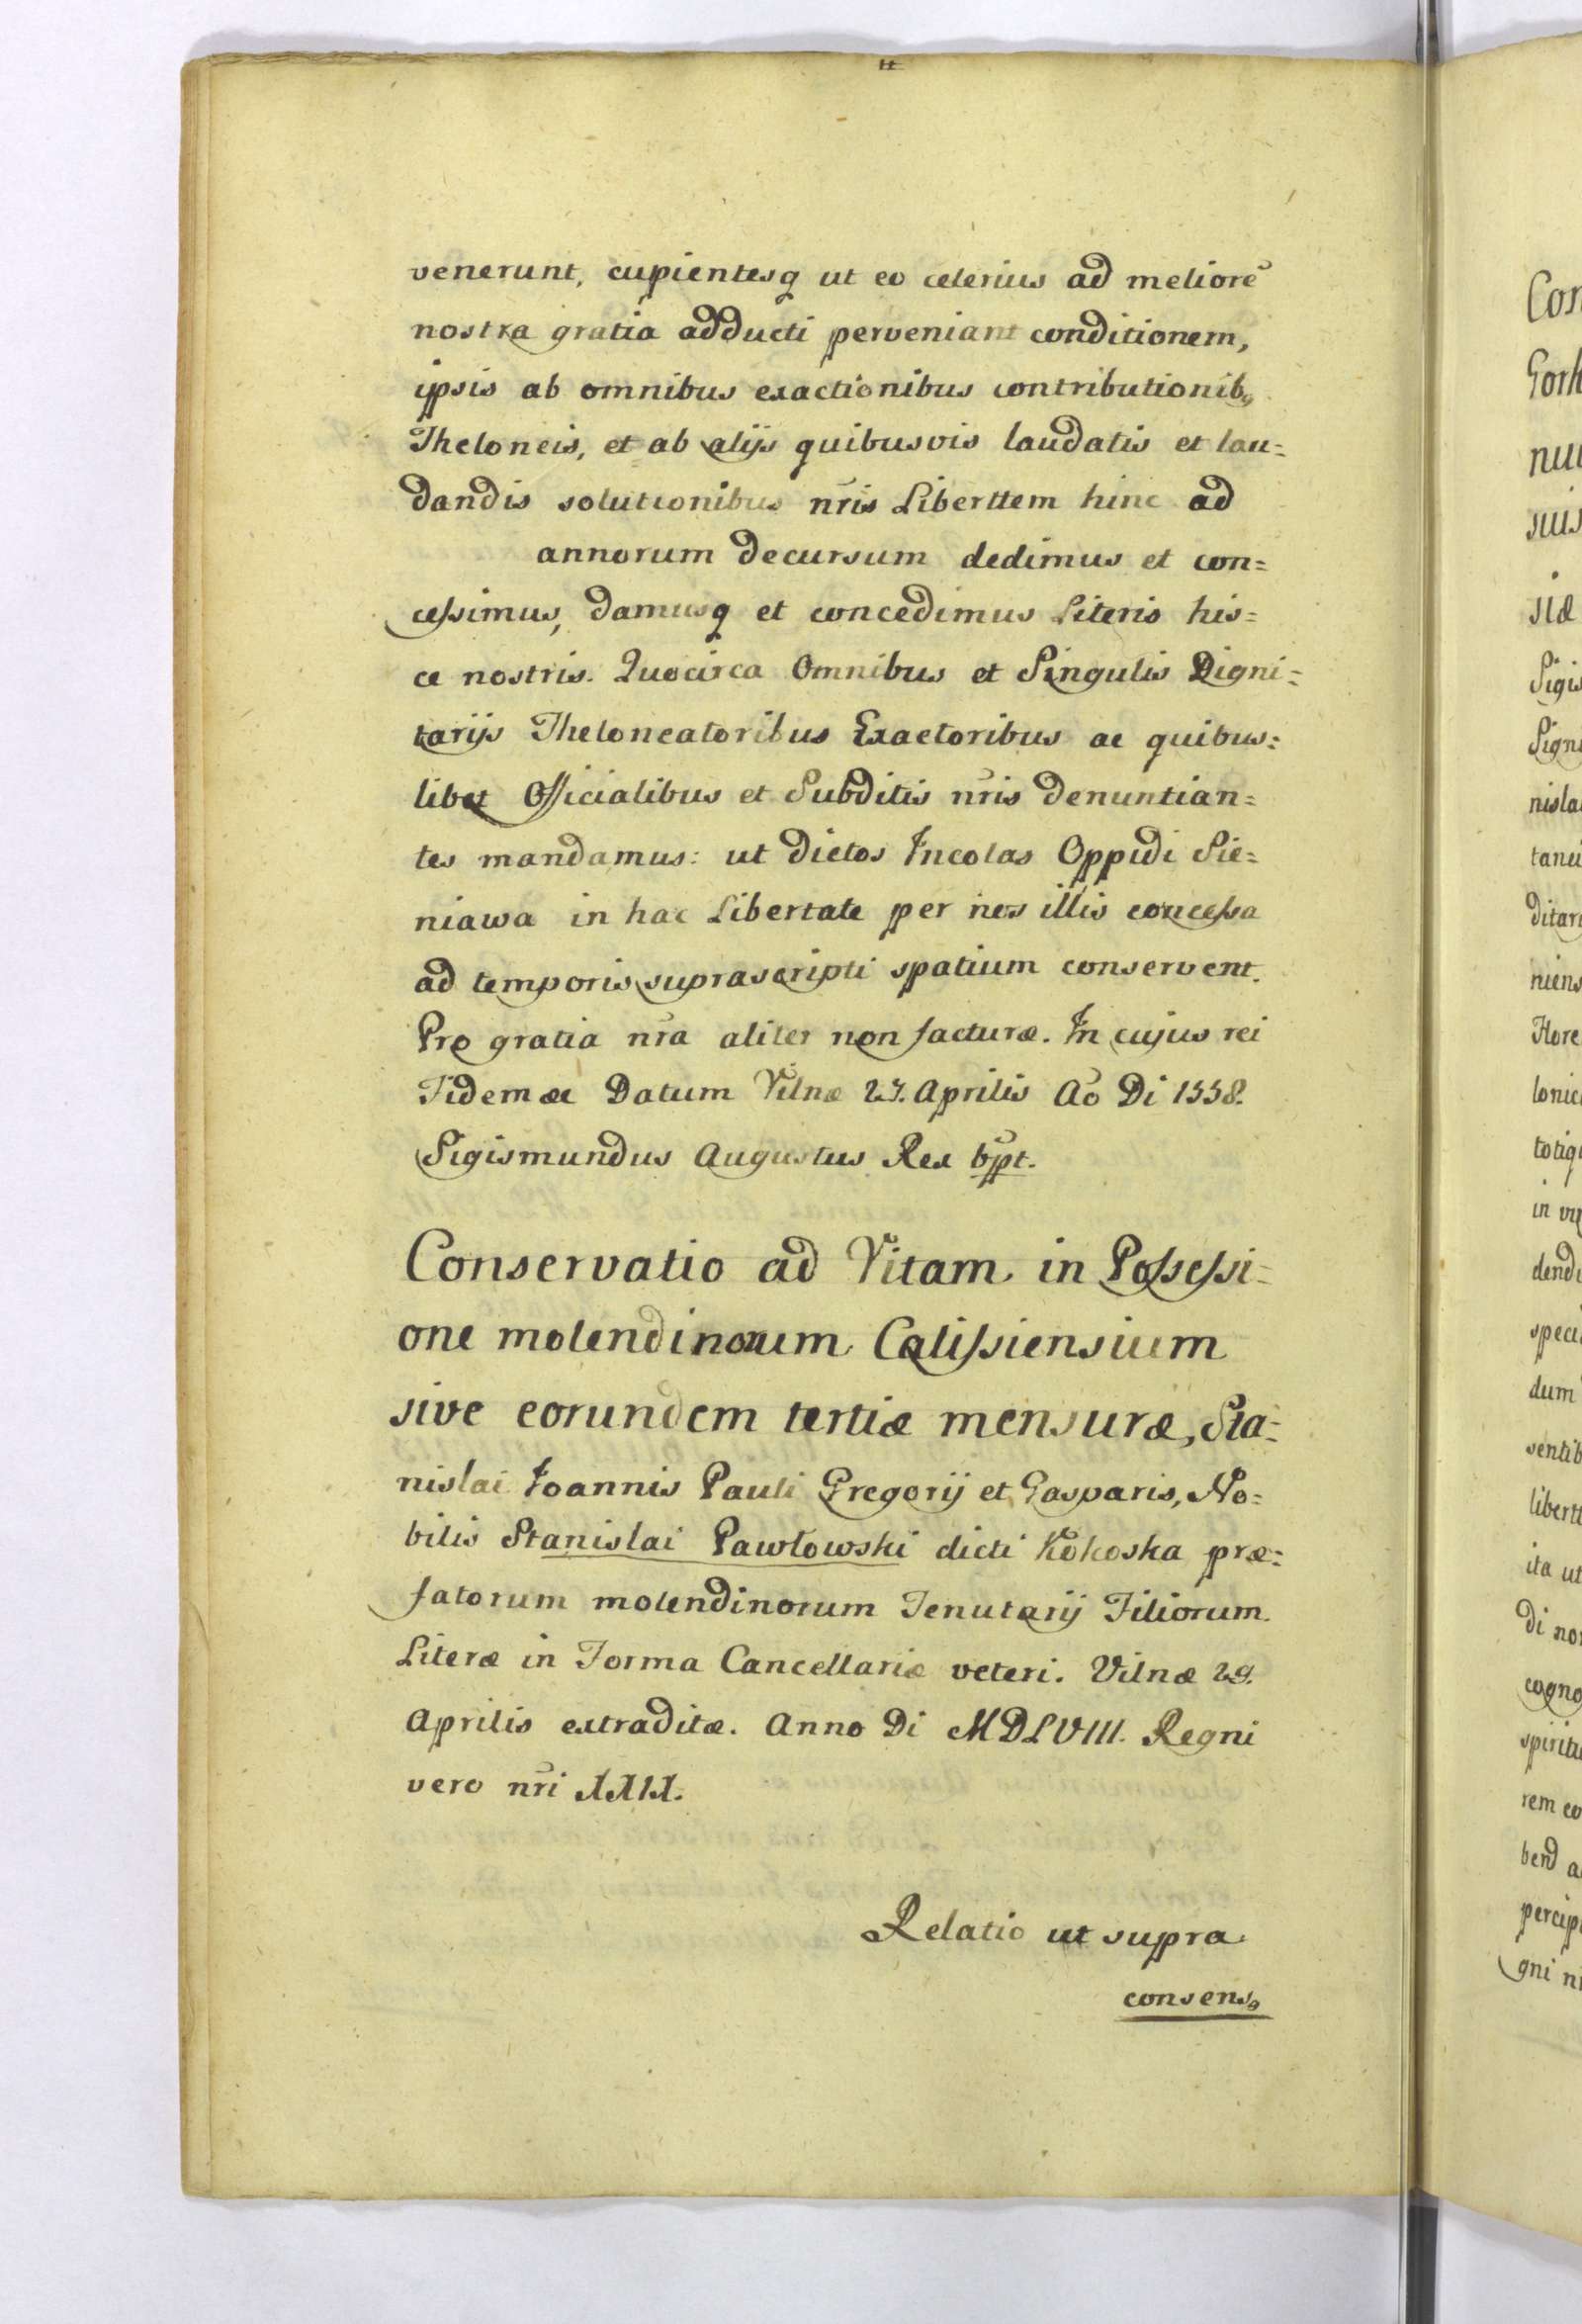 venerunt, cupientesq ut eo celerius ad meliorē
nostra gratia adducti perveniant conditionem,
ipsis ab omnibus exactionibus contributionibꝰ
Theloneis, et ab alijs quibusvis laudatis et lau=
dandis solutionibus nr̃is Liberttem hinc ad
annorum decursum dedimus et con=
cessimus, damusq et concedimus Literis his=
ce nostris. Quocirca Omnibus et Singulis Digni=
tarijs Theloneatoribus Exactoribus ac quibus=
libet Officialibus et Subditis nr̃is denuntian=
tes mandamus: ut dictos Incolas Oppidi Sie=
niawa in hac Libertate per nos illis concessa
ad temporis suprascripti spatium conservent.
Pro gratia nr̃a aliter non facturæ. In cujus rei
Fidem &c Datum Vilnæ 27. Aprilis Ao Di 1558.
Sigismundus Augustus Rex
Conservatio ad Vitam in Possessi=
one molendinorum Calissiensium
sive eorundem tertiæ mensuræ, Sta=
nislai Ioannis Pauli Gregorij et Gasparis, No=
bilis Stanislai Pawłowski dicti Kokoska præ=
fatorum molendinorum Tenutarij Filiorum
Literæ in Forma Cancellariæ veteri. Vilnæ 29.
Aprilis extraditæ. Anno Di MDLVIII. Regni
vero nr̃i XXIX.
Relatio ut supra
consensꝰ
Con
Gorh
nu
suis
siæ
Sigis
Sign
nisla
tanu
ditar
niens
Flore
lonic
totiq
in
dend
speci
dum
sentib
libert
ita ut
di no
cogno
spiritu
rem eo
bend a
percip
gni n